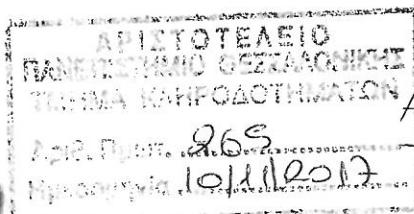 ΑΡΙΣΤΟΤΕΛΕΙΟ
ΠΑΝΕΠΙΣΤΗΜΙΟ ΘΕΣΣΑΛΟΝΙΚΗΣ
ΤΜΗΜΑ ΚΛΗΡΟΔΟΤΗΜΑΤΩΝ
Αριθ. Πρωτ. 269
Ημερομηνία 10/11/2017